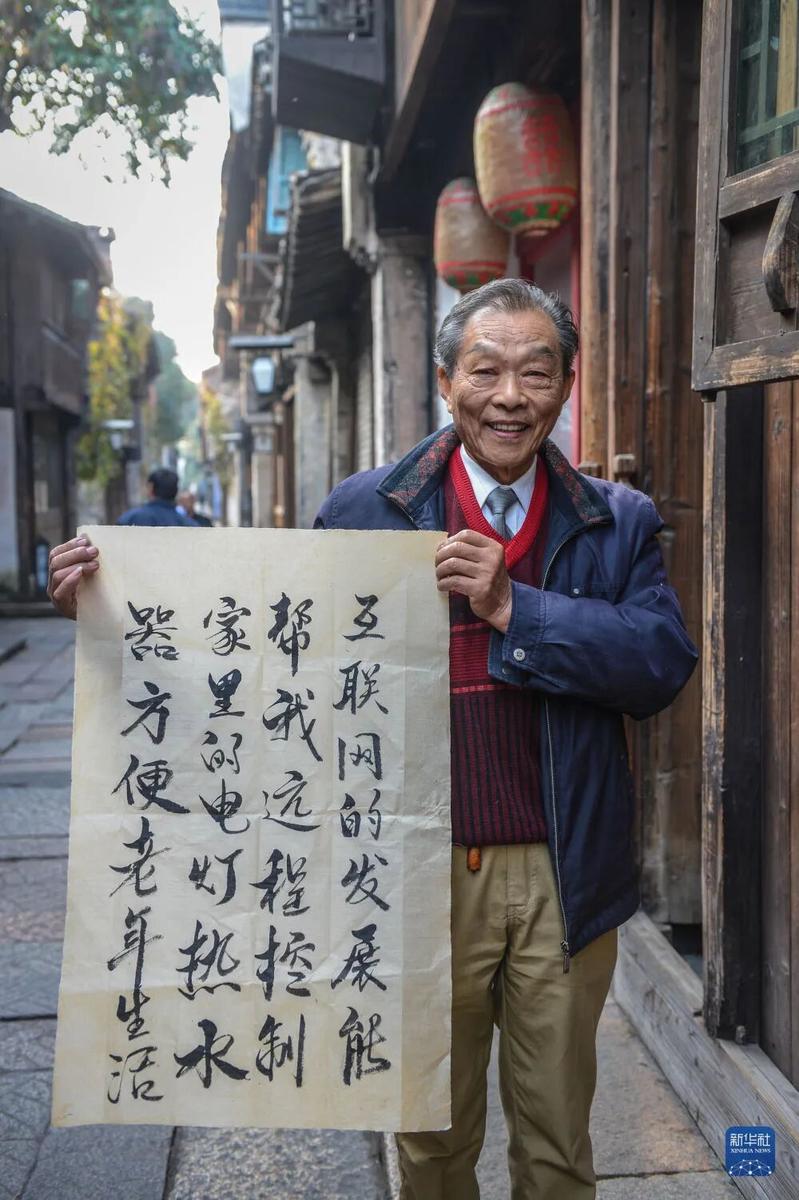 互联网的发展能
帮我远程控制
家里的电灯热水
器方便老年生活
新华社
XINHUA NEWS